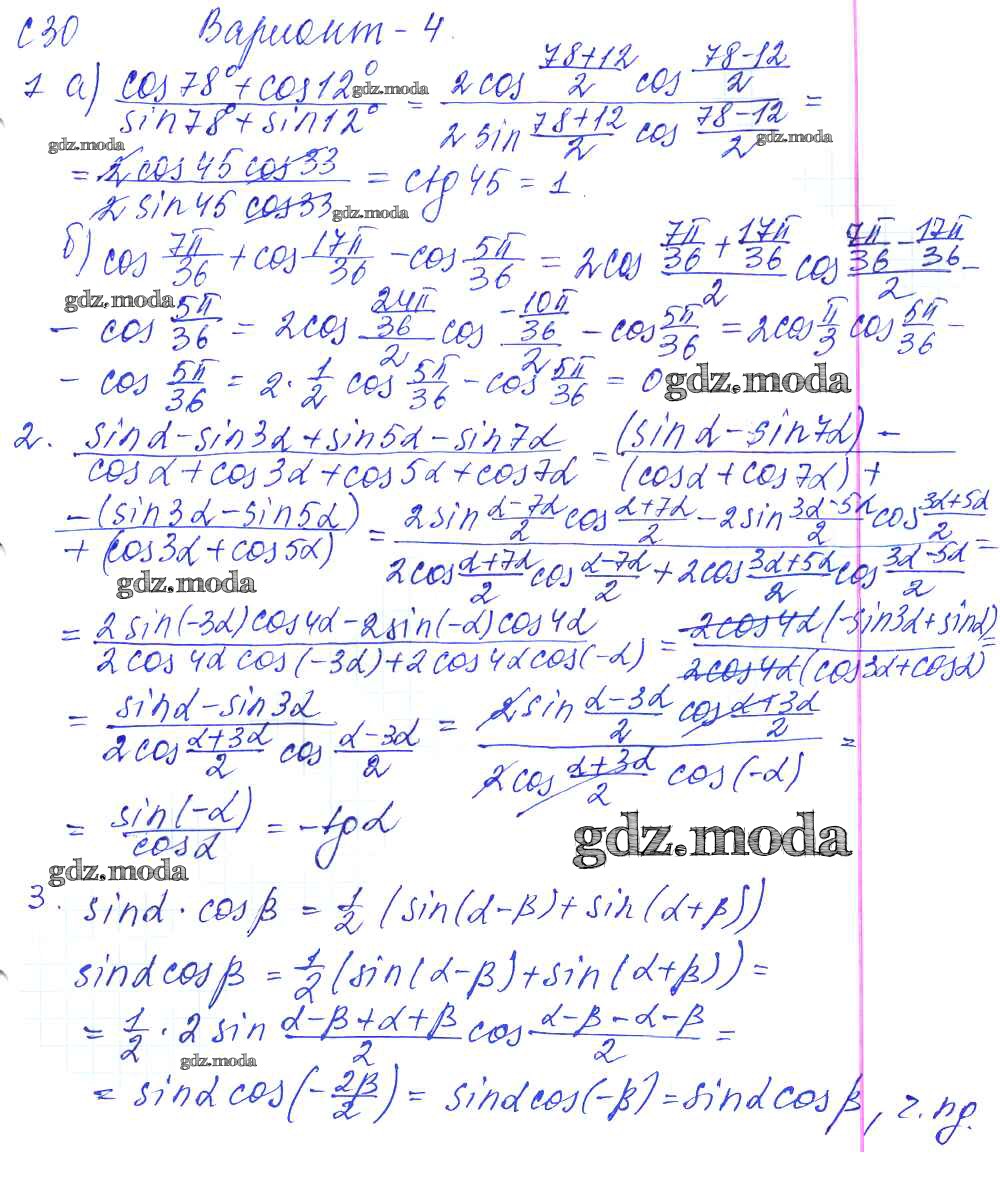 С30 Вариант - 4.
1 а) (cos 78° + cos 12°)/(sin 78° + sin 12°) = (2 cos (78+12)/2 cos (78-12)/2)/(2 sin (78+12)/2 cos (78-12)/2) =
gdz.moda
gdz.moda
gdz.moda
= (2 cos 45 cos 33)/(2 sin 45 cos 33) = ctg 45 = 1.
gdz.moda
б) cos 7π/36 + cos 17π/36 - cos 5π/36 = 2 cos (7π/36 + 17π/36)/2 cos (7π/36 - 17π/36)/2 -
gdz.moda
- cos 5π/36 = 2 cos (24π/36)/2 cos (-10π/36)/2 - cos 5π/36 = 2 cos π/3 cos 5π/36 -
- cos 5π/36 = 2 · 1/2 cos 5π/36 - cos 5π/36 = 0
gdz.moda
2. (sin α - sin 3α + sin 5α - sin 7α)/(cos α + cos 3α + cos 5α + cos 7α) = ((sin α - sin 7α) -)/((cos α + cos 7α) +)
(-(sin 3α - sin 5α))/(+ (cos 3α + cos 5α)) = (2 sin (α-7α)/2 cos (α+7α)/2 - 2 sin (3α-5α)/2 cos (3α+5α)/2)/(2 cos (α+7α)/2 cos (α-7α)/2 + 2 cos (3α+5α)/2 cos (3α-5α)/2) =
gdz.moda
= (2 sin(-3α) cos 4α - 2 sin(-α) cos 4α)/(2 cos 4α cos(-3α) + 2 cos 4α cos(-α)) = (2 cos 4α (-sin 3α + sin α))/(2 cos 4α (cos 3α + cos α)) =
= (sin α - sin 3α)/(2 cos (α+3α)/2 cos (α-3α)/2) = (2 sin (α-3α)/2 cos (α+3α)/2)/(2 cos (α+3α)/2 cos(-α)) =
= sin(-α)/cos α = -tg α
gdz.moda
gdz.moda
3. sin α · cos β = 1/2 (sin(α-β) + sin(α+β))
sin α cos β = 1/2 (sin(α-β) + sin(α+β)) =
= 1/2 · 2 sin (α-β+α+β)/2 cos (α-β-α-β)/2 =
gdz.moda
= sin α cos(-2β/2) = sin α cos(-β) = sin α cos β, ч.тд.